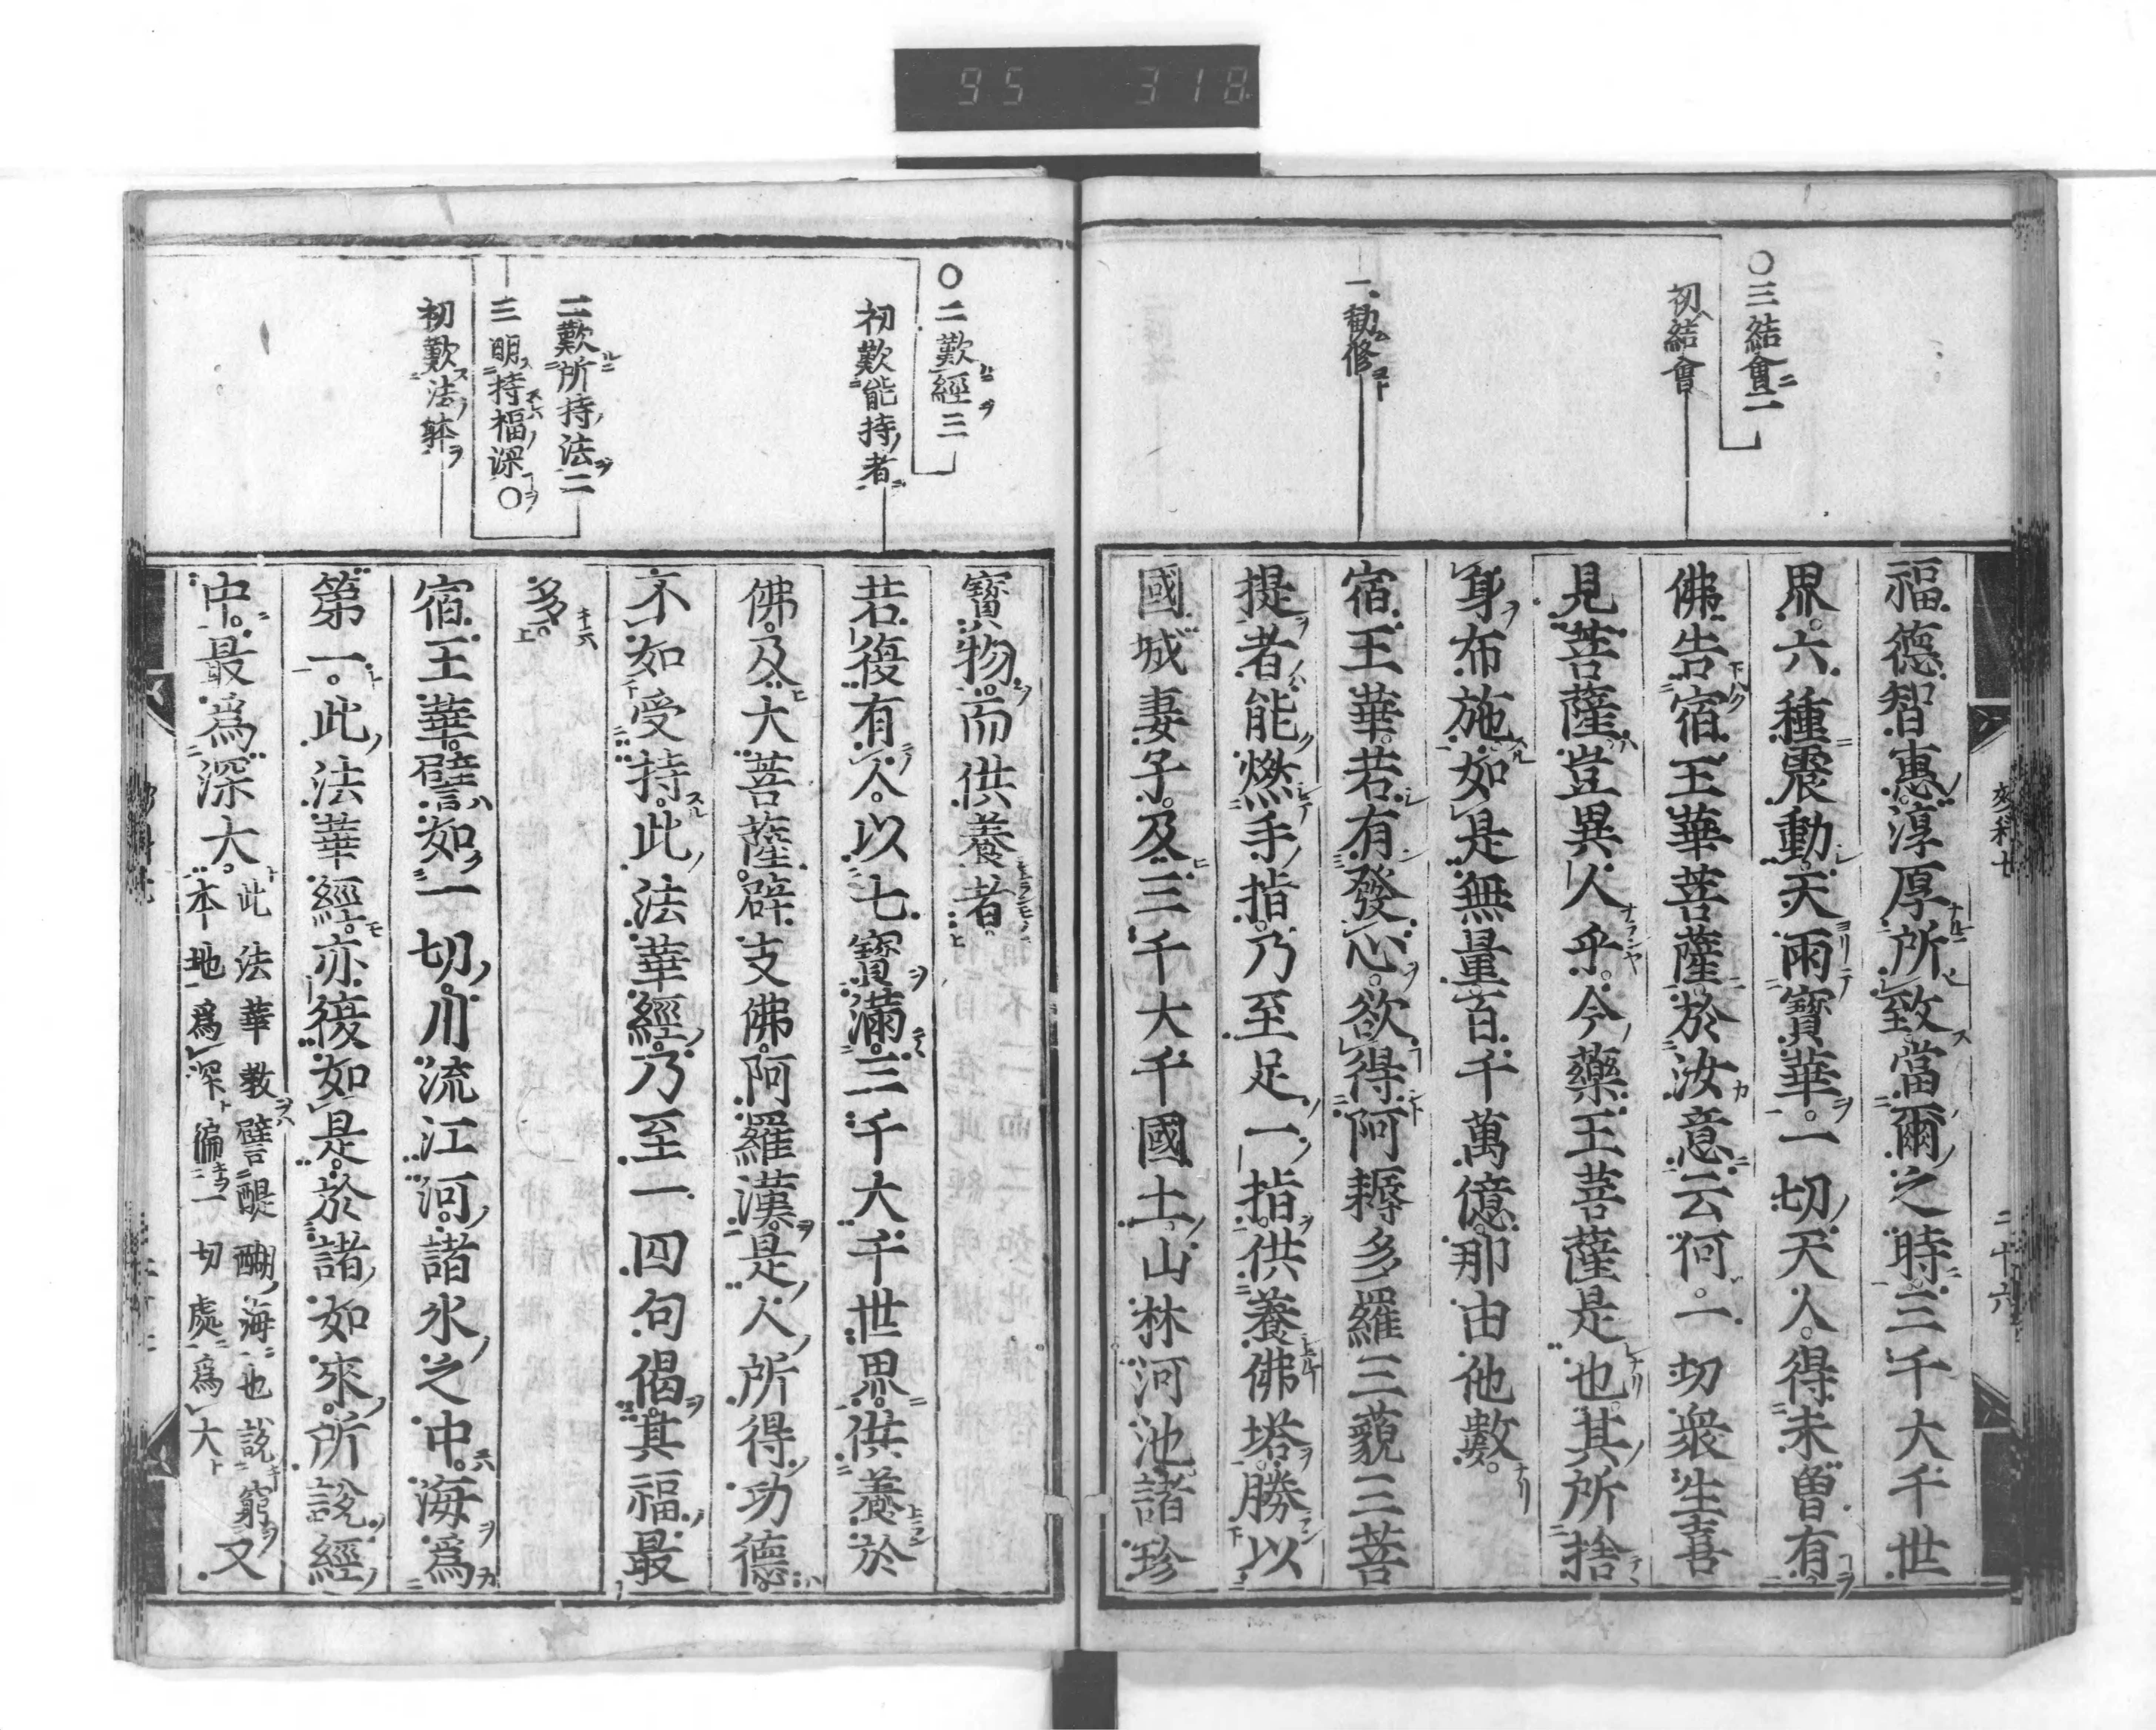 95 318
〇三結會二
初結會
二勸修
福德智惠淳厚所致當爾之時三千大千世
界六種震動天雨寶華一切天人得未曾有
佛告宿王華菩薩於汝意云何一切衆生喜
見菩薩豈異人乎今藥王菩薩是也其所捨
身布施如是無量百千萬億那由他數
宿王華若有發心欲得阿耨多羅三藐三菩
提者能燃手指乃至足一指供養佛塔勝以
國城妻子及三千大千國土山林河池諸珍
二十六
〇二歎經三
初歎能持者
二歎所持法二
三明持福深〇
初歎法躰
寶物而供養者
若復有人以七寶滿三千大千世界供養於
佛及大菩薩辟支佛阿羅漢是人所得功德
不如受持此法華經乃至一四句偈其福最
多
宿王華譬如一切川流江河諸水之中海爲
第一此法華經亦復如是於諸如來所說經
中最爲深大此法華教譬醍醐海也說窮
本地爲深徧一切處爲大又